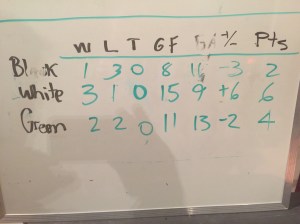 W L T GF +/- Pts
Black 1 3 0 8 11 -3 2
White 3 1 0 15 9 +6 6
Green 2 2 0 11 13 -2 4